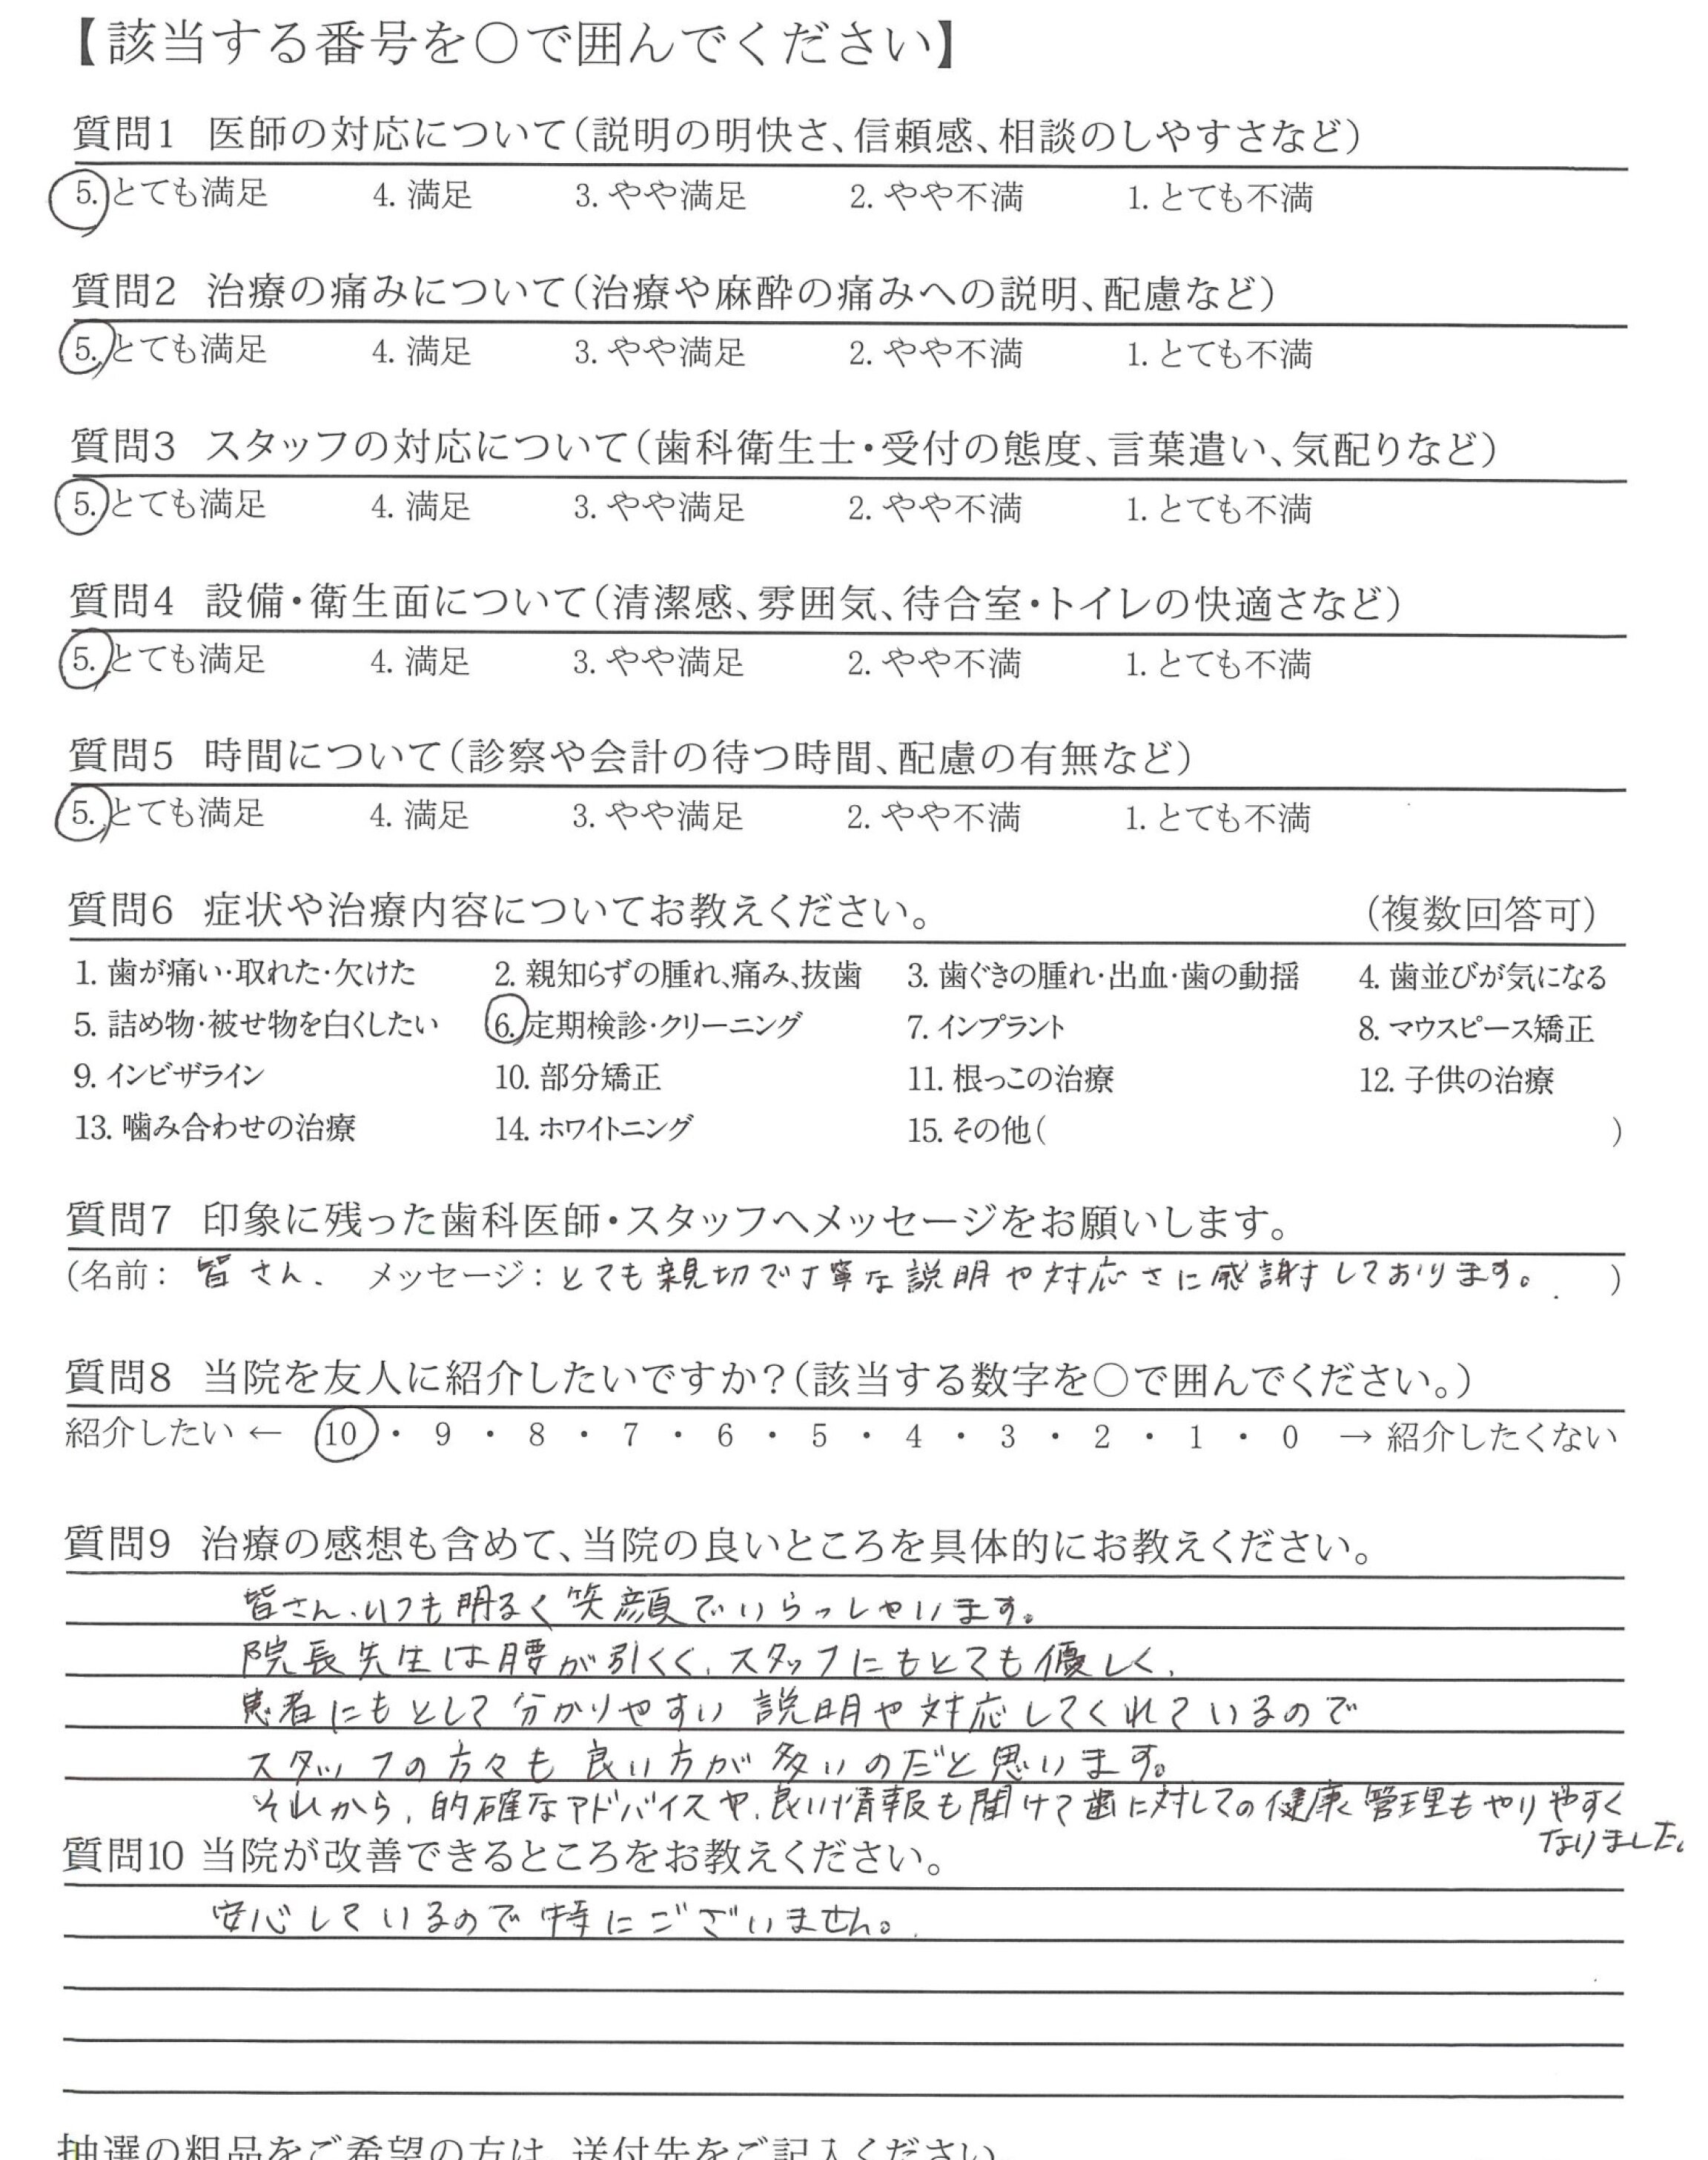 【該当する番号を〇で囲んでください】
質問1 医師の対応について（説明の明快さ、信頼感、相談のしやすさなど）
5. とても満足 4. 満足 3. やや満足 2. やや不満 1. とても不満
質問2 治療の痛みについて（治療や麻酔の痛みへの説明、配慮など）
5. とても満足 4. 満足 3. やや満足 2. やや不満 1. とても不満
質問3 スタッフの対応について（歯科衛生士・受付の態度、言葉遣い、気配りなど）
5. とても満足 4. 満足 3. やや満足 2. やや不満 1. とても不満
質問4 設備・衛生面について（清潔感、雰囲気、待合室・トイレの快適さなど）
5. とても満足 4. 満足 3. やや満足 2. やや不満 1. とても不満
質問5 時間について（診察や会計の待つ時間、配慮の有無など）
5. とても満足 4. 満足 3. やや満足 2. やや不満 1. とても不満
質問6 症状や治療内容についてお教えください。 （複数回答可）
1. 歯が痛い・取れた・欠けた 2. 親知らずの腫れ、痛み、抜歯 3. 歯ぐきの腫れ・出血・歯の動揺 4. 歯並びが気になる
5. 詰め物・被せ物を白くしたい 6. 定期検診・クリーニング 7. インプラント 8. マウスピース矯正
9. インビザライン 10. 部分矯正 11. 根っこの治療 12. 子供の治療
13. 噛み合わせの治療 14. ホワイトニング 15. その他（ ）
質問7 印象に残った歯科医師・スタッフへメッセージをお願いします。
（名前： 皆さん、 メッセージ：とても親切で丁寧な説明や対応さに感謝しております。 ）
質問8 当院を友人に紹介したいですか？（該当する数字を〇で囲んでください。）
紹介したい ← 10 ・ 9 ・ 8 ・ 7 ・ 6 ・ 5 ・ 4 ・ 3 ・ 2 ・ 1 ・ 0 → 紹介したくない
質問9 治療の感想も含めて、当院の良いところを具体的にお教えください。
皆さん、いつも明るく笑顔でいらっしゃいます。
院長先生は腰が引くく、スタッフにもとても優しく、
患者にもとして分かりやすい説明や対応してくれているので
スタッフの方々も良い方が多いのだと思います。
それから、的確なアドバイスや、良い情報も聞けて歯に対しての健康管理もやりやすく
なりました。
質問10 当院が改善できるところをお教えください。
安心しているので特にございません。
抽選の粗品をご希望の方は、送付先をご記入ください。